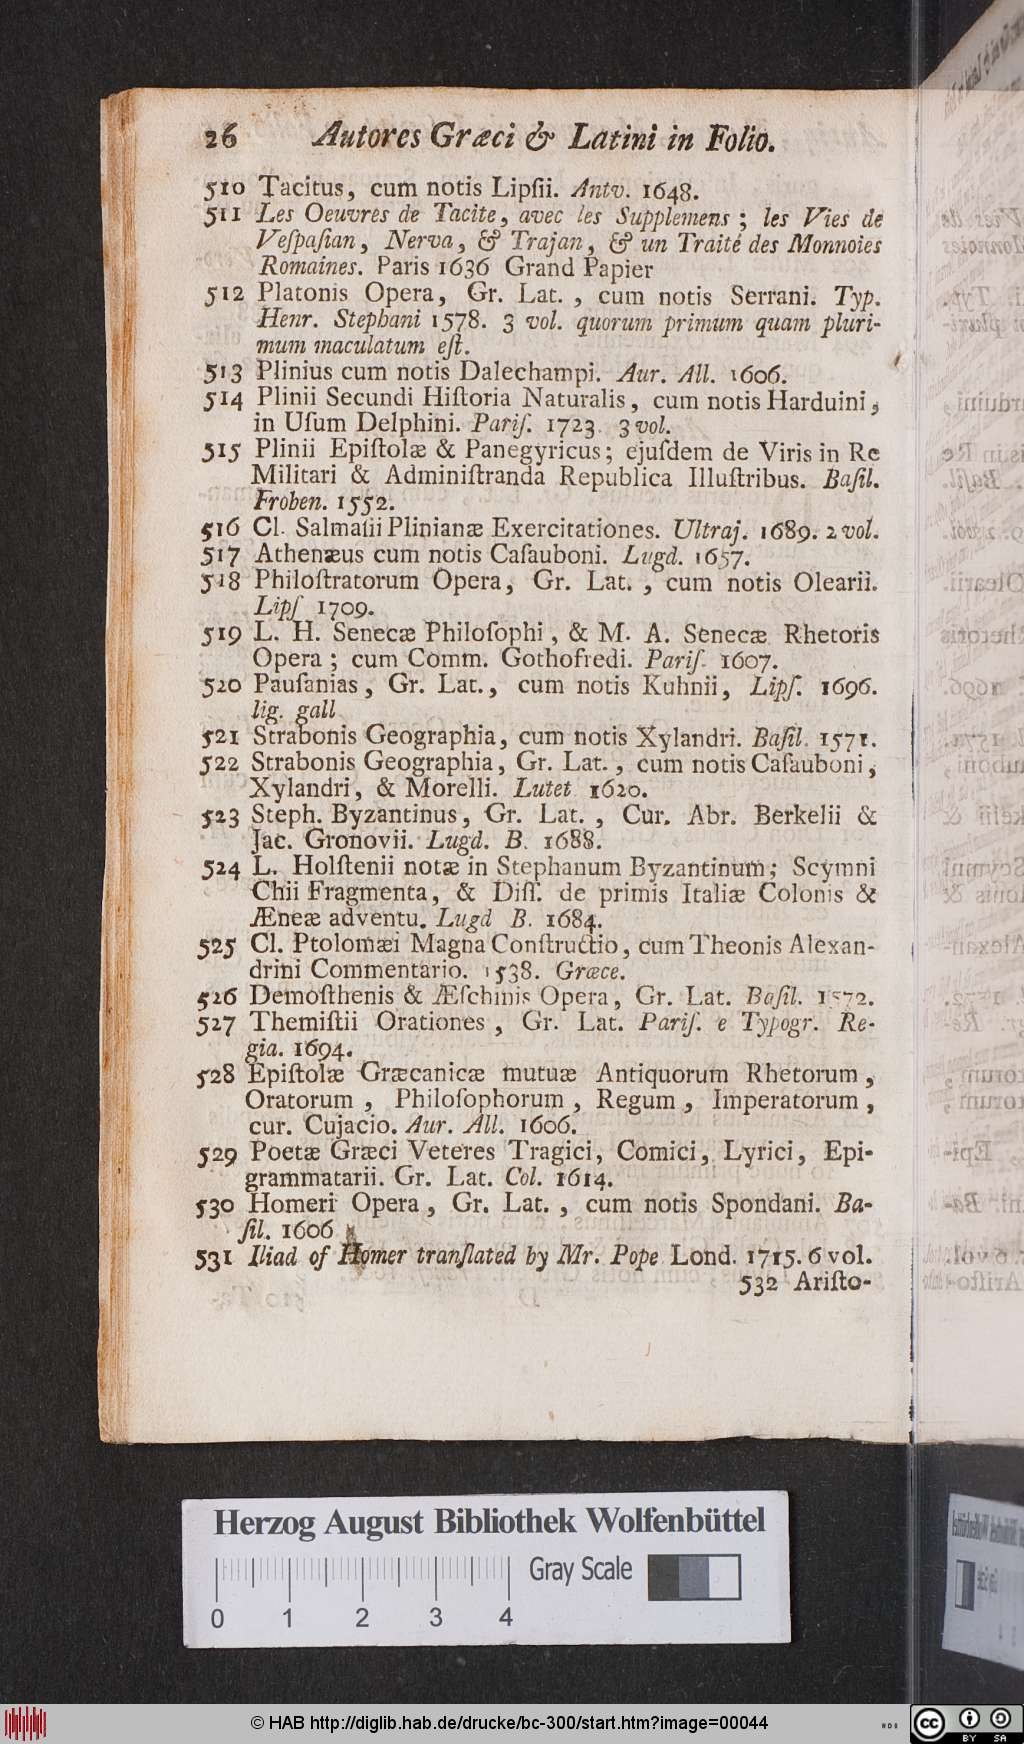 26 Autores Græci & Latini in Folio.
510 Tacitus, cum notis Lipſii. Antv. 1648.
511 Les Oeuvres de Tacite, avec les Supplemens; les Vies de
Veſpaſian, Nerva, & Trajan, & un Traité des Monnoies
Romaines. Paris 1636 Grand Papier
512 Platonis Opera, Gr. Lat., cum notis Serrani. Typ.
Henr. Stephani 1578. 3 vol. quorum primum quam pluri-
mum maculatum eſt.
513 Plinius cum notis Dalechampi. Aur. All. 1606.
514 Plinii Secundi Hiſtoria Naturalis, cum notis Harduini,
in Uſum Delphini. Pariſ. 1723. 3 vol.
515 Plinii Epiſtolæ & Panegyricus; ejuſdem de Viris in Re
Militari & Adminiſtranda Republica Illuſtribus. Baſil.
Froben. 1552.
516 Cl. Salmaſii Plinianæ Exercitationes. Ultraj. 1689. 2 vol.
517 Athenæus cum notis Caſauboni. Lugd. 1657.
518 Philoſtratorum Opera, Gr. Lat., cum notis Olearii.
Lipſ 1709.
519 L. H. Senecæ Philoſophi, & M. A. Senecæ Rhetoris
Opera; cum Comm. Gothofredi. Pariſ. 1607.
520 Pauſanias, Gr. Lat., cum notis Kuhnii, Lipſ. 1696.
lig. gall
521 Strabonis Geographia, cum notis Xylandri. Baſil. 1571.
522 Strabonis Geographia, Gr. Lat., cum notis Caſauboni,
Xylandri, & Morelli. Lutet 1620.
523 Steph. Byzantinus, Gr. Lat., Cur. Abr. Berkelii &
Jac. Gronovii. Lugd. B. 1688.
524 L. Holſtenii notæ in Stephanum Byzantinum; Scymni
Chii Fragmenta, & Diſſ. de primis Italiæ Colonis &
Æneæ adventu. Lugd B. 1684.
525 Cl. Ptolomæi Magna Conſtructio, cum Theonis Alexan-
drini Commentario. 1538. Græce.
526 Demoſthenis & Æſchinis Opera, Gr. Lat. Baſil. 1572.
527 Themiſtii Orationes, Gr. Lat. Pariſ. e Typogr. Re-
gia. 1694.
528 Epiſtolæ Græcanicæ mutuæ Antiquorum Rhetorum,
Oratorum, Philoſophorum, Regum, Imperatorum,
cur. Cujacio. Aur. All. 1606.
529 Poetæ Græci Veteres Tragici, Comici, Lyrici, Epi-
grammatarii. Gr. Lat. Col. 1614.
530 Homeri Opera, Gr. Lat., cum notis Spondani. Ba-
ſil. 1606
531 Iliad of Homer tranſlated by Mr. Pope Lond. 1715. 6 vol.
532 Ariſto-
Herzog August Bibliothek Wolfenbüttel
Gray Scale
0 1 2 3 4
© HAB http://diglib.hab.de/drucke/bc-300/start.htm?image=00044
cc BY SA